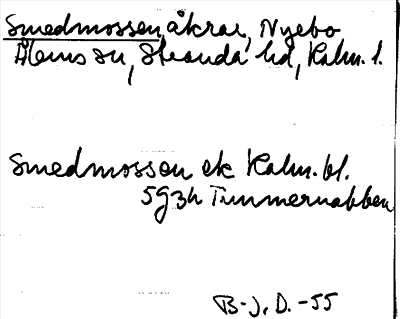 Smedmossen, åkrar, Nyebo
Ålems sn, Stranda hd, Kalm. l.
Smedmossen ek Kalm. bl.
5g3h Timmernabben
B-J. D. -55